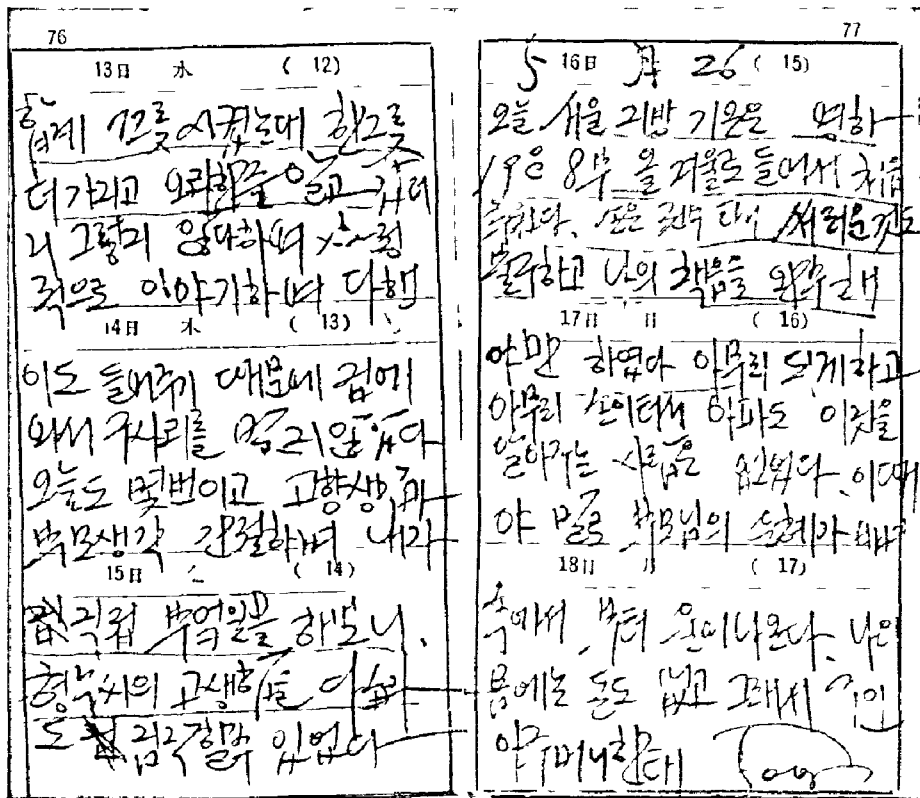 76
13日 水 ( 12)
함께 그릇 시켰는데 한그릇
더 가지고 오라한줄 알고 있더
니 그렇지 않다하며
적으로 이야기하며 다행
14日 木 ( 13)
이도 들어주기 때문에 집에
와서 를
오늘도 몇번이고 고향생각과
부모생각 간절하며 내가
15日 ( 14)
직접 부엌일을 하보니
형수씨의 고생을
도 짐작할수 있었다
77
5 16日 月 26 ( 15)
오늘 서울 지방 기온은 영하
19은 8부 올 겨울로 들어서 처음
손은 서러운것도
불구하고 나의 책임을 완수해
17日 日 ( 16)
야만 하였다 아무리 되게하고
아무리 아파도 이것을
알아주는 사람은 없었다. 이때
야 말로 부모님의 은혜가 뼈
18日 月 ( 17)
속에서 부터 나온다. 나의
몸에는 돈도 없고 그래서